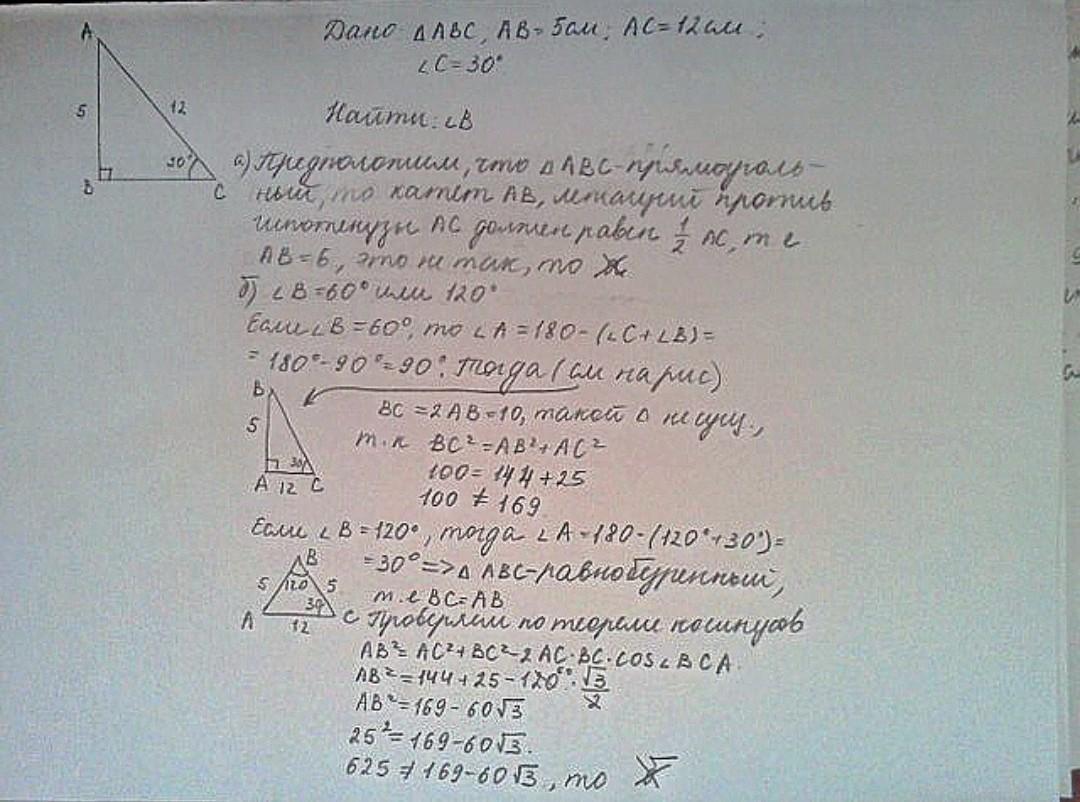 Дано: △ABC, AB=5см; AC=12см;
∠C=30°
Найти: ∠B
A
5
12
30°
B
C
а) Предположим, что △ABC-прямоуголь-
ный, то катет AB, лежащий против
гипотенузы AC должен равен 1/2 AC, т е
AB=6, это не так, то
б) ∠B=60° или 120°
Если ∠B=60°, то ∠A=180-(∠C+∠B)=
=180°-90°=90°. Тогда (см на рис)
B
5
30
A 12 C
BC=2AB=10, такой △ не сущ.,
т.к BC²=AB²+AC²
100=144+25
100≠169
Если ∠B=120°, тогда ∠A=180-(120°+30°)=
=30°=>△ABC-равнобедренный,
т.е BC=AB
B
5
120
5
30
A
12
C
Проверяем по теореме косинусов
AB²=AC²+BC²-2AC·BC·cos∠BCA
AB²=144+25-120·√3/2
AB²=169-60√3
25²=169-60√3.
625≠169-60√3, то